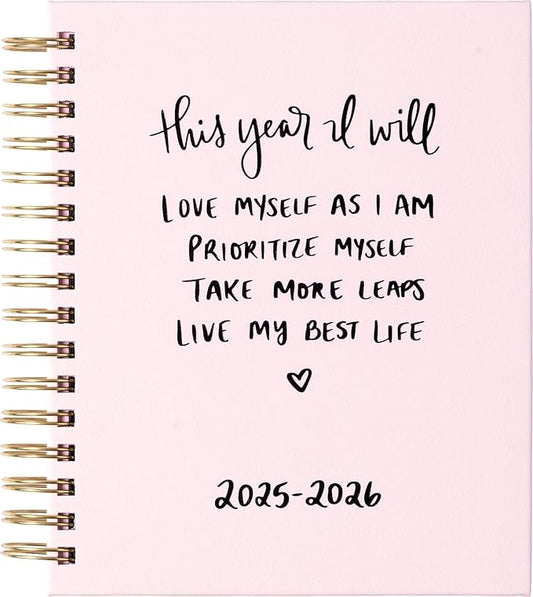 this year I will
LOVE MYSELF AS I AM
PRIORITIZE MYSELF
TAKE MORE LEAPS
LIVE MY BEST LIFE
2025-2026